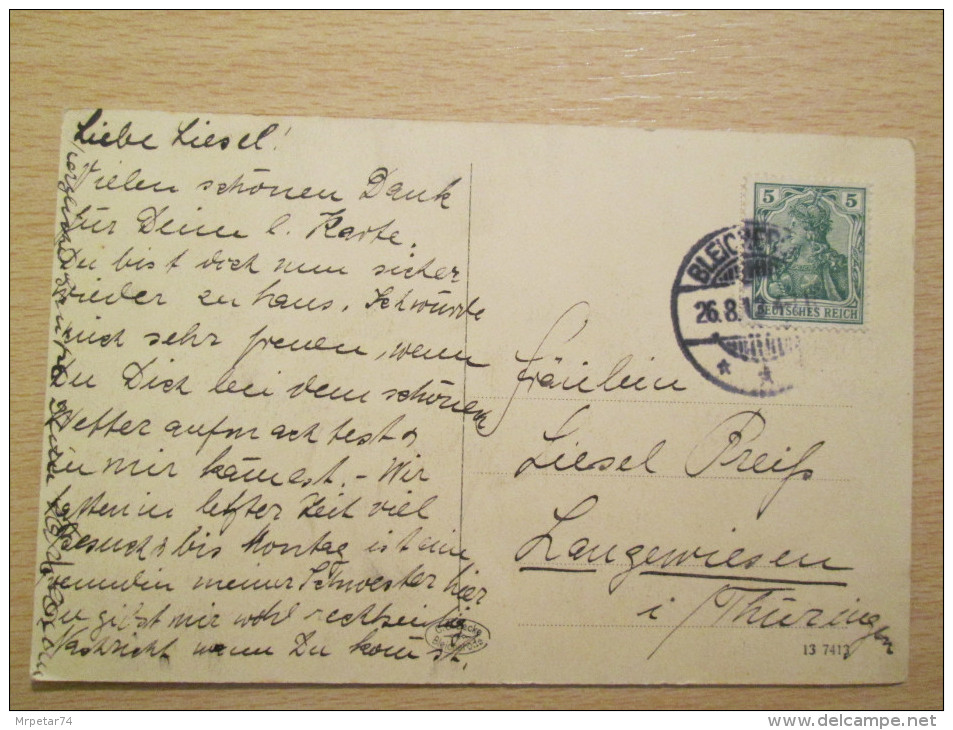 Liebe Liesel!
Vielen schönen Dank
für Deine l. Karte.
Du bist doch nun sicher
wieder zu haus. Ich würde
mich sehr freuen, wenn
Du Dich bei dem schönen
Wetter aufmachtest u
zu mir kämest. - Wir
hatten in letzter Zeit viel
Besuch, bis Montag ist eine
Freundin meiner Schwester hier
Du gibst mir wohl rechtzeitig
Nachricht wann Du kommst.
5 5
DEUTSCHES REICH
BLEICHERODE
26.8.1
Fräulein
Liesel Preiß
Langewiesen
i/Thüringen
13 7413
Mrpetar74
www.delcampe.net